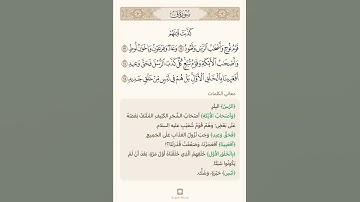 سُورَةُ قٓ
كَذَّبَتۡ قَبۡلَهُمۡ
قَوۡمُ نُوحٖ وَأَصۡحَٰبُ ٱلرَّسِّ وَثَمُودُ ١٢ وَعَادٞ وَفِرۡعَوۡنُ وَإِخۡوَٰنُ لُوطٖ ١٣
وَأَصۡحَٰبُ ٱلۡأَيۡكَةِ وَقَوۡمُ تُبَّعٖۚ كُلّٞ كَذَّبَ ٱلرُّسُلَ فَحَقَّ وَعِيدِ ١٤
أَفَعَيِينَا بِٱلۡخَلۡقِ ٱلۡأَوَّلِۚ بَلۡ هُمۡ فِي لَبۡسٖ مِّنۡ خَلۡقٖ جَدِيدٖ ١٥
معاني الكلمات
﴿الرَّسِّ﴾ البِئْرِ.
﴿وَأَصْحَابُ الْأَيْكَةِ﴾ أَصْحَابُ الشَّجَرِ الكَثِيفِ المُلْتَفِّ بَعْضُهُ
عَلَى بَعْضٍ؛ وَهُمْ قَوْمُ شُعَيْبٍ عليه السلام.
﴿فَحَقَّ وَعِيدِ﴾ وَجَبَ نُزُولُ العَذَابِ عَلَى الجَمِيعِ.
﴿أَفَعَيِينَا﴾ أَفَعَجَزْنَا، وَضَعُفَتْ قُدْرَتُنَا؟!
﴿بِالْخَلْقِ الْأَوَّلِ﴾ خَلْقِهِمُ الَّذِي خَلَقْنَاهُ أَوَّلَ مَرَّةٍ، بَعْدَ أَنْ لَمْ
يَكُونُوا شَيْئًا.
﴿لَبْسٍ﴾ حَيْرَةٍ، وَشَكٍّ.